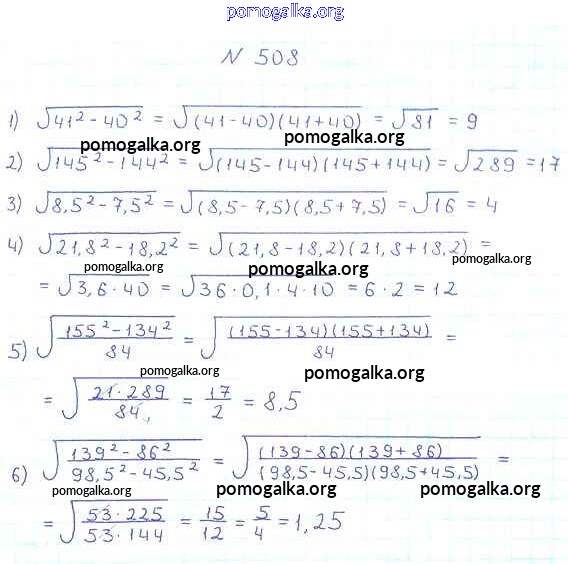 pomogalka.org
N 508
1) √(41² - 40²) = √((41-40)(41+40)) = √81 = 9
pomogalka.org pomogalka.org
2) √(145² - 144²) = √((145-144)(145+144)) = √289 = 17
3) √(8,5² - 7,5²) = √((8,5-7,5)(8,5+7,5)) = √16 = 4
4) √(21,8² - 18,2²) = √((21,8-18,2)(21,8+18,2)) =
pomogalka.org pomogalka.org pomogalka.org
= √(3,6·40) = √(36·0,1·4·10) = 6·2 = 12
5) √((155² - 134²)/84) = √((155-134)(155+134)/84) =
pomogalka.org pomogalka.org
= √(21·289/84) = 17/2 = 8,5
pomogalka.org
6) √((139² - 86²)/(98,5² - 45,5²)) = √((139-86)(139+86)/((98,5-45,5)(98,5+45,5))) =
pomogalka.org pomogalka.org pomogalka.org
= √(53·225/(53·144)) = 15/12 = 5/4 = 1,25